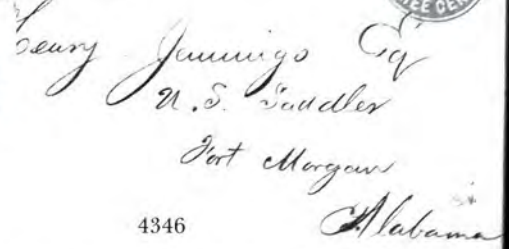 THREE CEN
Henry Jennings Eq
U. S. Saddler
Fort Morgan
Alabama
4346